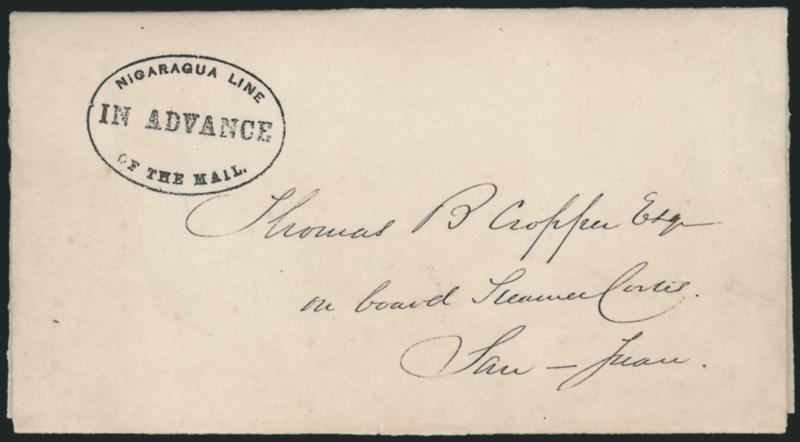 NIGARAGUA LINE
IN ADVANCE
OF THE MAIL.
Thomas B Cropper Esqr
on board Steamer Cortes.
San - Juan.